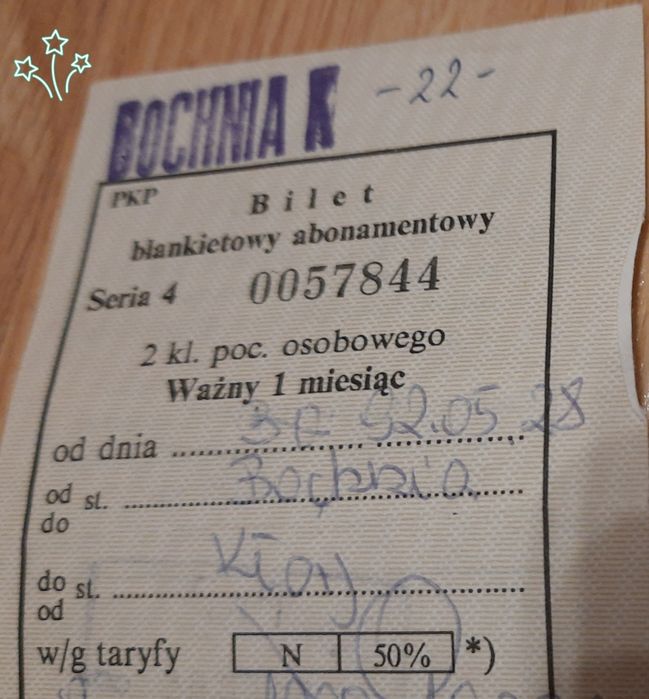 BOCHNIA K -22-
PKP Bilet
blankietowy abonamentowy
Seria 4 0057844
2 kl. poc. osobowego
Ważny 1 miesiąc
od dnia 92.05.28
od st. Bochnia
do
do st. Kłaj
od
w/g taryfy N 50% *)